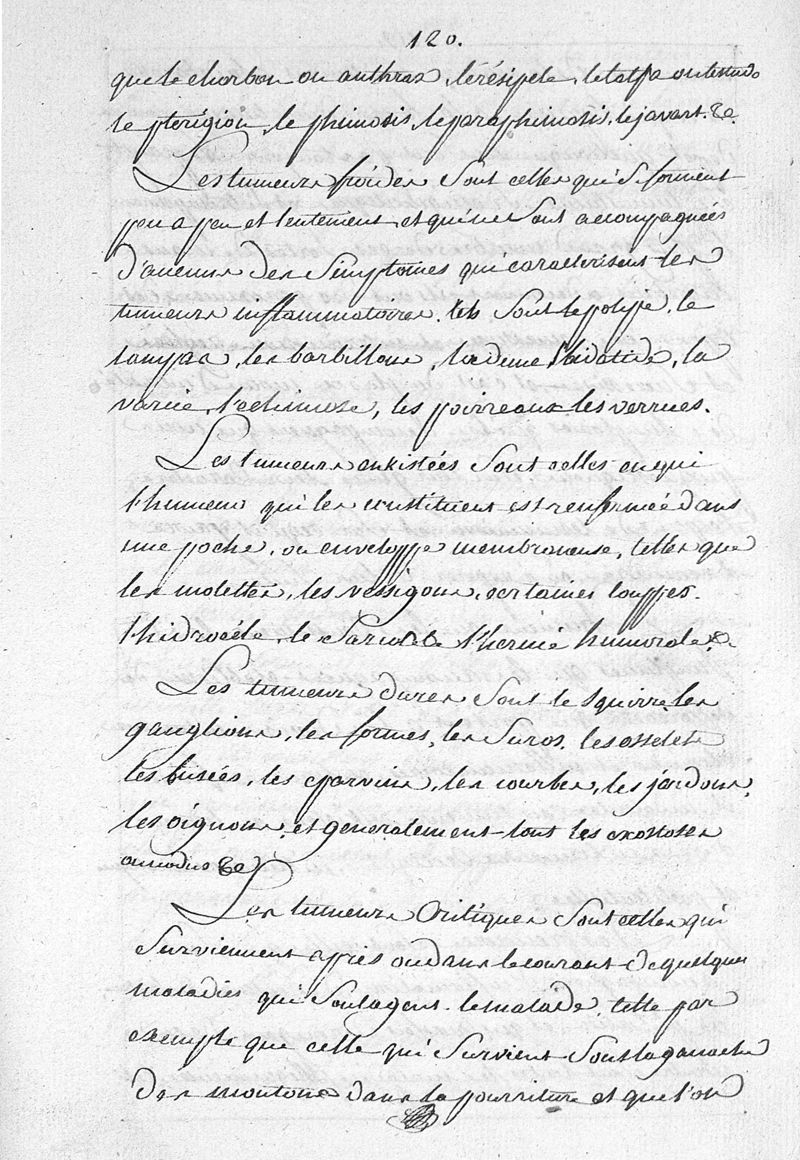 120.
que le charbon ou anthrax, l'erésipele, le talpa ou testudo
le pterigion, le phimosis, le paraphimosis, le javart. &c.
Les tumeurs froides sont celles qui se forment
peu a peu et lentement, et qui ne sont accompagnées
d'aucuns des simptomes qui caracterisent les
tumeurs inflammatoires. tels sont le polype, le
lampas, les barbillons, l'œdeme, l'hidatide, la
varice, l'echimose, les poirreaux les verrues.
Les tumeurs enkistées sont celles en qui
l'humeur qui les constituent est renfermée dans
une poche, ou enveloppe membraneuse, telles que
les molettes, les vessigons, certaines louppes.
l'hidrocéle, le sarcocele l'hernie humorale &c
Les tumeurs dures sont le squirre, les
ganglions, les formes, les suros, les osselets
les fusées, les eparvins, les courbes, les jardons,
les oignons, et generalement tout les exostoses
&c
Les tumeurs critiques sont celles qui
surviennent après ou dans le courant de quelques
maladies qui soulagent le malade, telle par
exemple que celle qui survient sous la ganache
des moutons dans la pourriture et que l'on